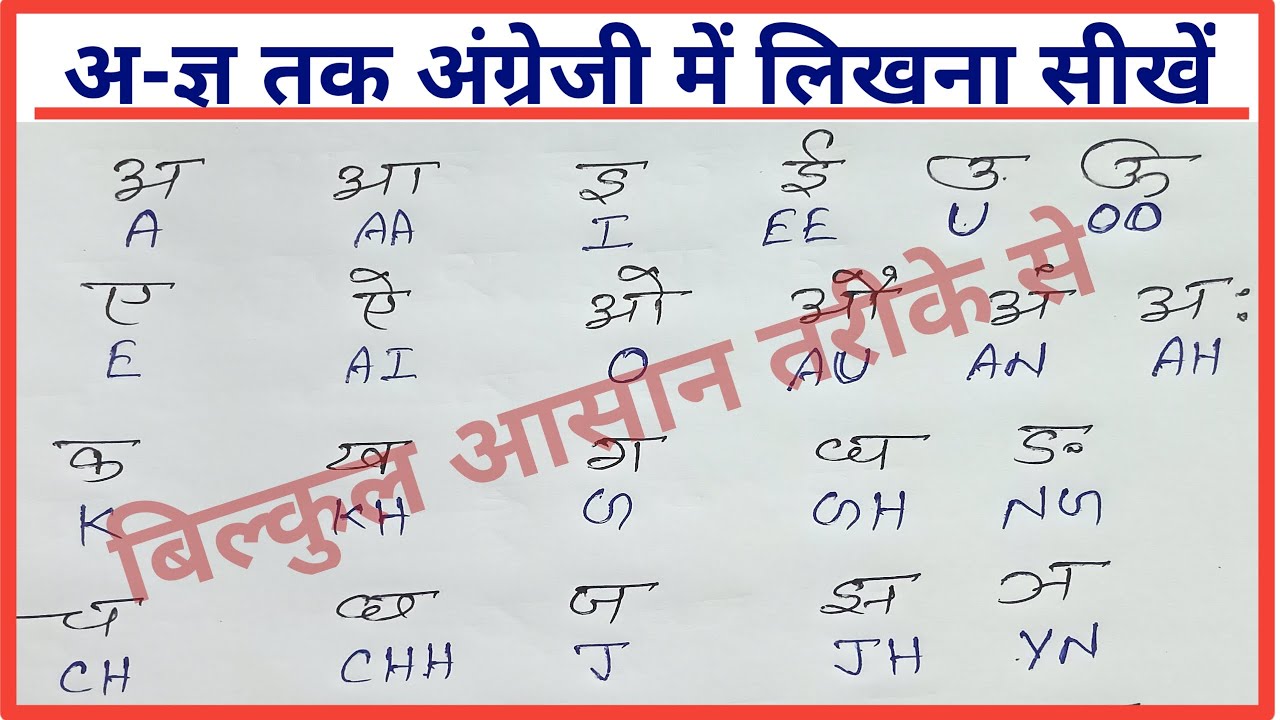 अ-ज्ञ तक अंग्रेजी में लिखना सीखें
अ आ इ ई उ ऊ
A AA I EE U OO
ए ऐ ओ औ अं अः
E AI O AU AN AH
बिल्कुल आसान तरीके से
क ख ग घ ङ
K KH G GH NG
च छ ज झ ञ
CH CHH J JH YN